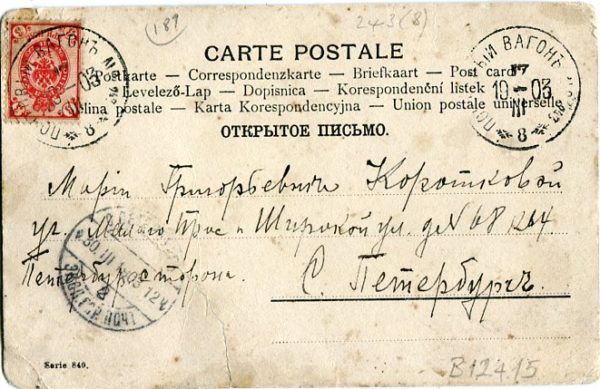 189
243(8)
CARTE POSTALE
Postkarte — Correspondenzkarte — Briefkaart — Post card
Levelező-Lap — Dopisnica — Korespondenční listek
postale — Karta Korespondencyjna — Union postale universelle
ОТКРЫТОЕ ПИСЬМО.
ВАГОНЪ
03
8
ВАГОНЪ
19 03
III
8
Маріи Григорьевнѣ Коротковой
уг. Малаго Прос и Широкой ул. д№ 68 кв 4
Петербург сторона.
С. Петербургъ.
30 III
12
Serie 849.
B12415